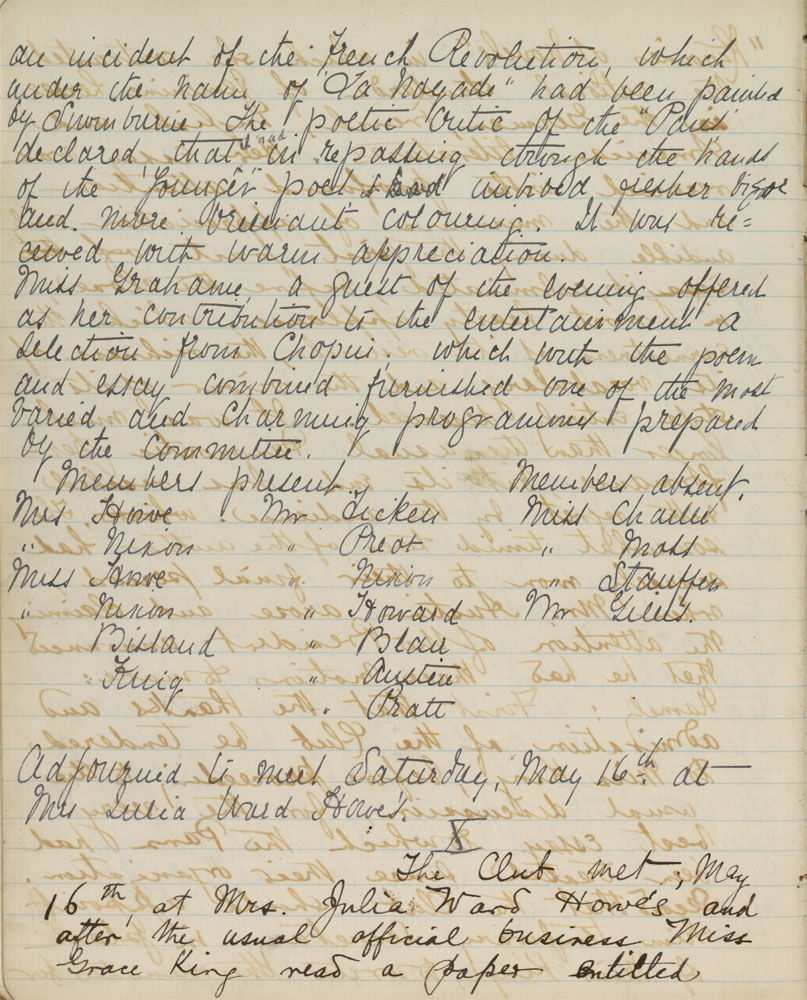 an incident of the French Revolution, which
under the name of "La Noyade" had been painted
by Swinburne. The poetic critic of the "Pans"
declared, that it had in repassing through the hands
of the "younger" poet, imbibed fresher vigor
and more brilliant colouring. It was re=
ceived with warm appreciation.
Miss Grahame a guest of the evening offered
as her contribution to the entertainment a
selection from Chopin; which with the poem
and essay combined furnished one of the most
varied and charming programmes prepared
by the Committee.
Members present. Members absent.
Mrs Howe Mr Ficken Miss Charles
" Nixon " Preot " Moss
Miss Howe " Nixon " Stauffer
" Nixon " Howard Mr Giles.
Bisland " Blau
King " Austin
" Pratt
Adjourned to meet Saturday, May 16th. at
Mrs Julia Ward Howe's.
X
The Club met, May
16th, at Mrs. Julia Ward Howe's and
after the usual official business Miss
Grace King read a paper entitled